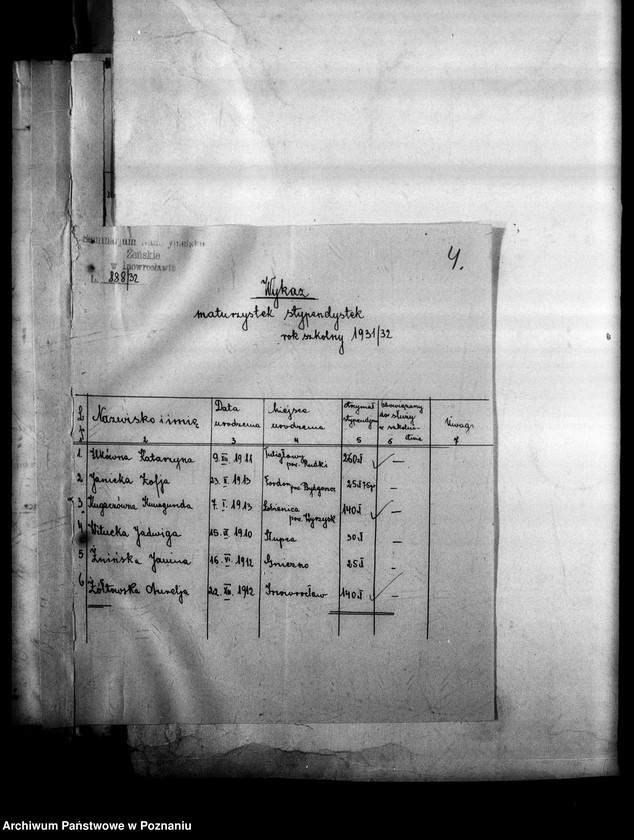 Seminarjum Nauczycielskie
Żeńskie
w Inowrocławiu
L. 898/32
4.
Wykaz
maturzystek stypendystek
rok szkolny 1931/32
L Nazwisko i imię Data urodzenia Miejsce urodzenia otrzymał stypendjum obowiązany do służby w szkolnictwie Uwagi
2 3 4 5 6 7
1 Katarzyna 9. 1911 pow. Rudki 260 zł —
2 Janicka Zofja 23. I. 1913 Fordon pow. Bydgoszcz 25 zł —
3 Kunegunda 7. I. 1913 Łobżenica pow. Wyrzysk 140 zł —
4 Witucka Jadwiga 15. 1910 Słupca 30 zł —
5 Żnińska Janina 16. VI. 1912 Gniezno 25 zł —
6 Żółtowska Aurelja 22. 1912 Inowrocław 140 zł —
Archiwum Państwowe w Poznaniu